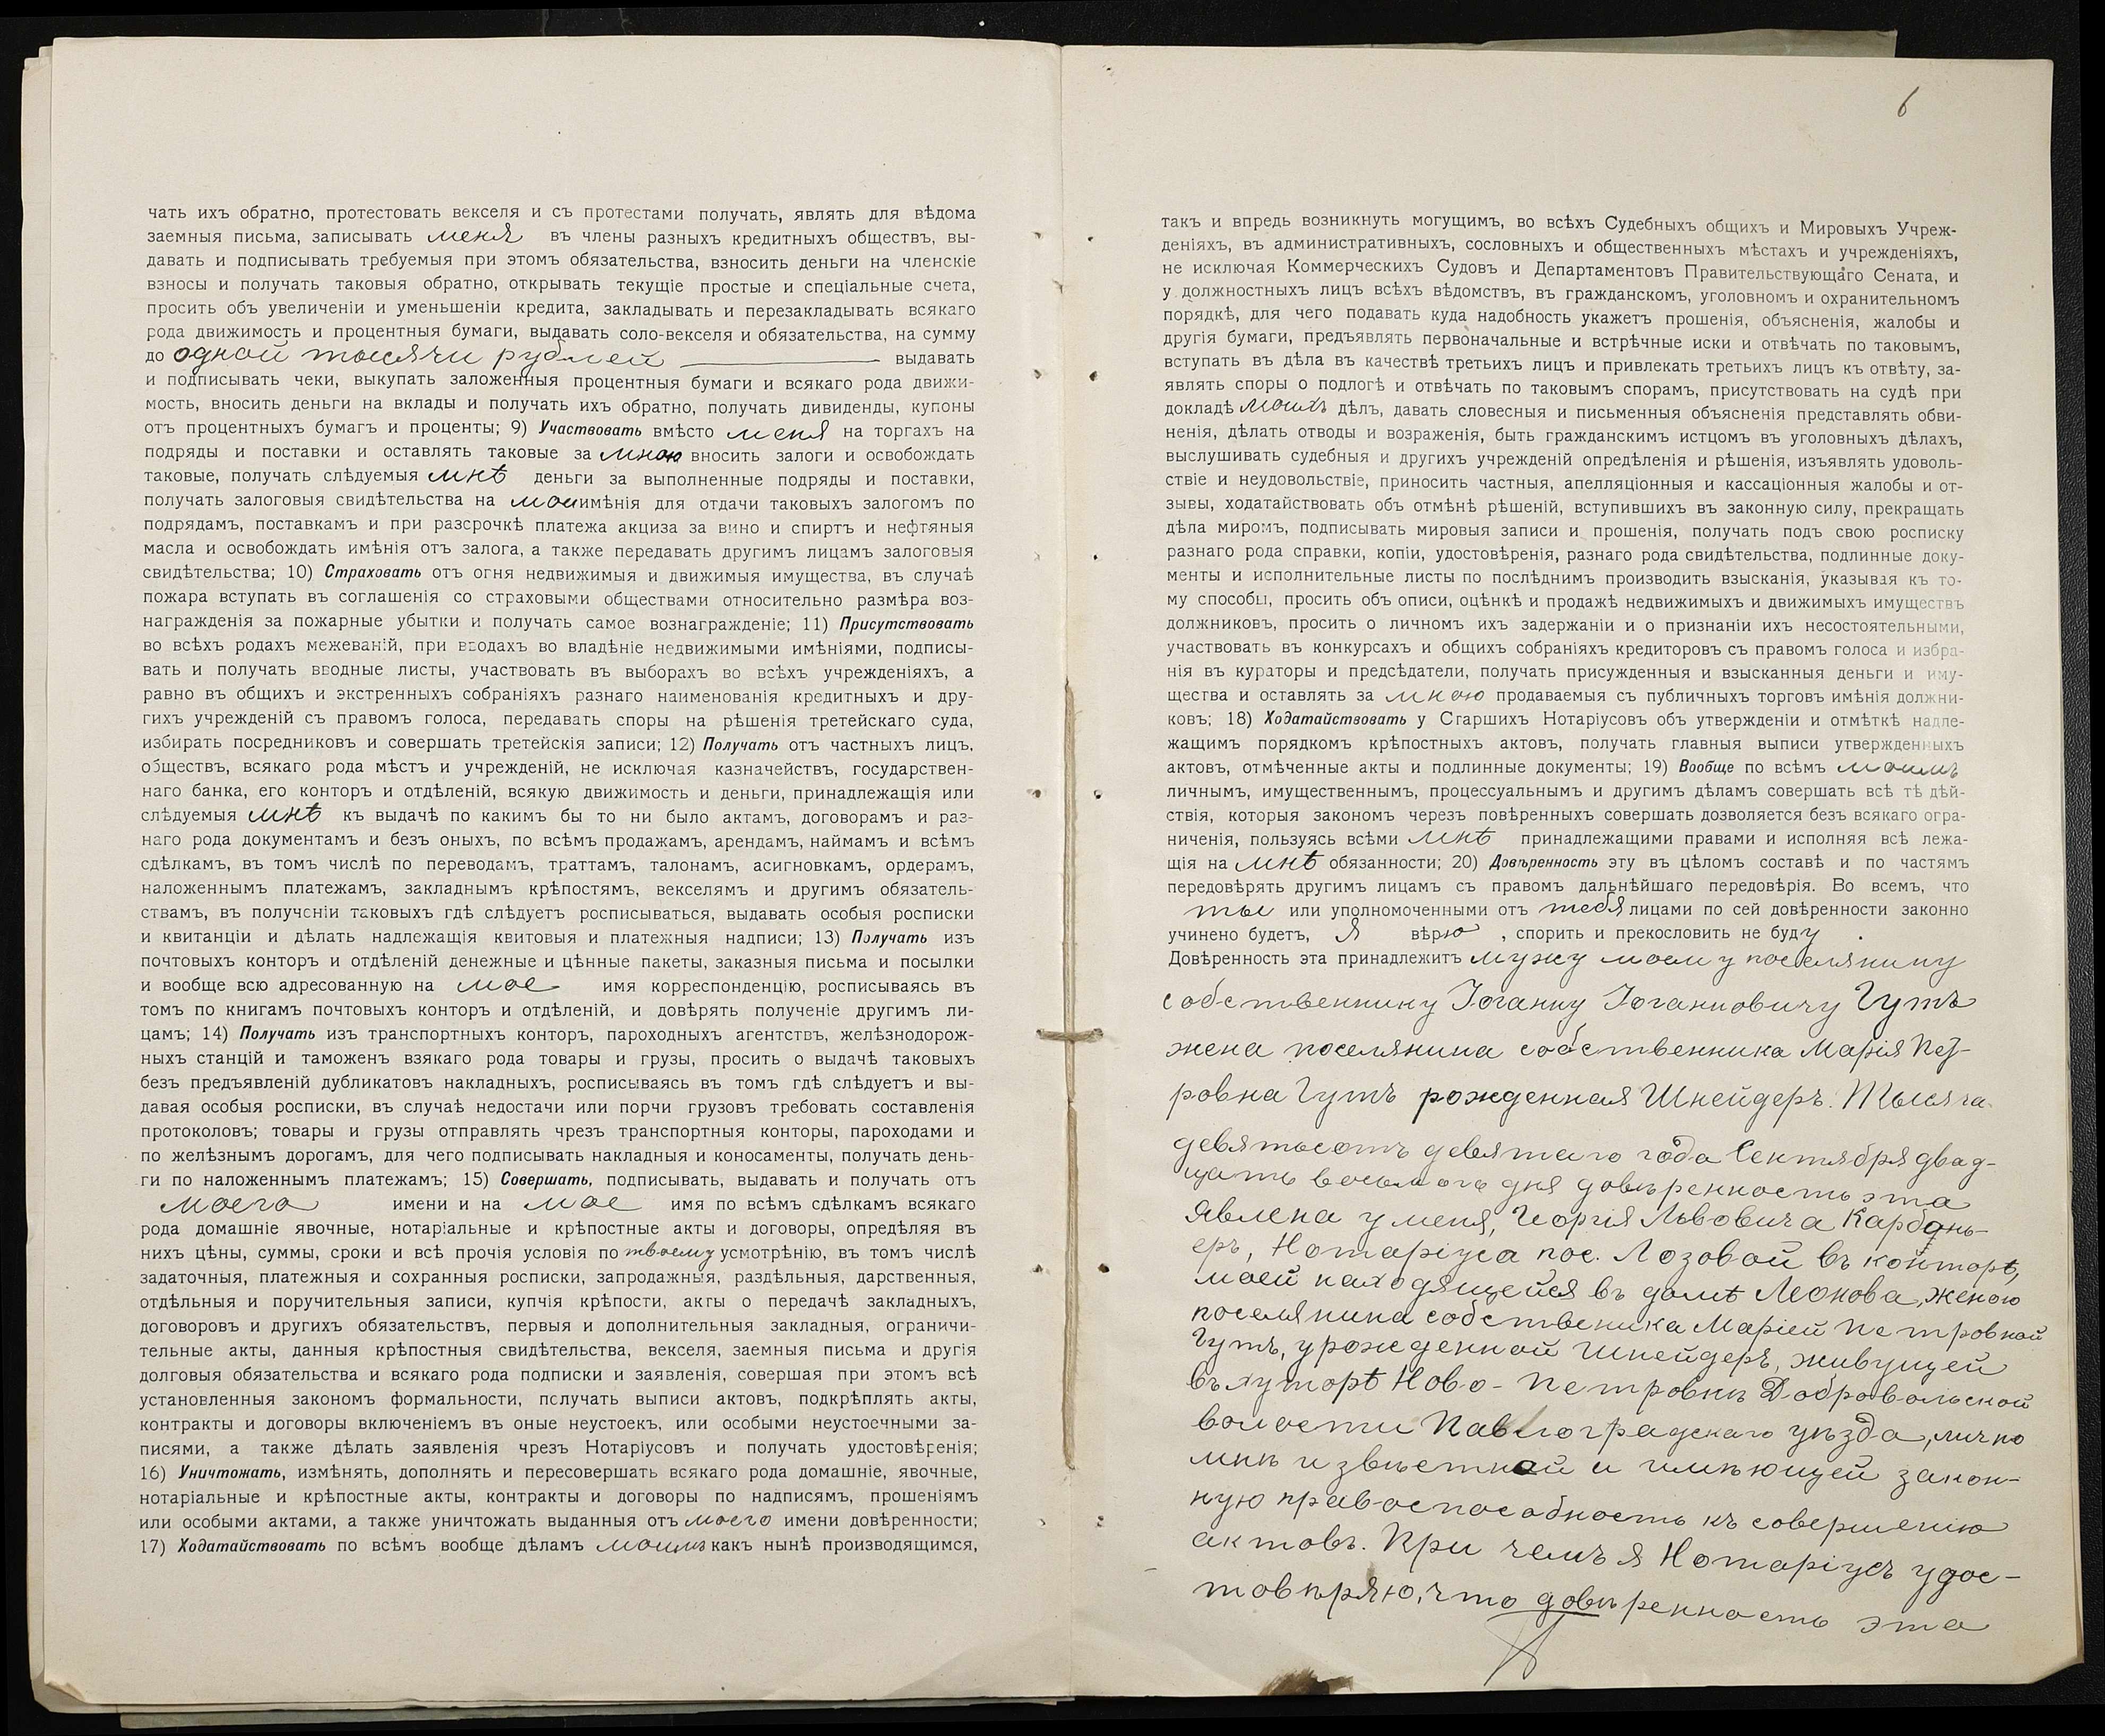 чать ихъ обратно, протестовать векселя и съ протестами получать, являть для вѣдома
заемныя письма, записывать меня въ члены разныхъ кредитныхъ обществъ, вы-
давать и подписывать требуемыя при этомъ обязательства, взносить деньги на членскіе
взносы и получать таковыя обратно, открывать текущіе простые и спеціальные счета,
просить объ увеличеніи и уменьшеніи кредита, закладывать и перезакладывать всякаго
рода движимость и процентныя бумаги, выдавать соло-векселя и обязательства, на сумму
до одной тысячи рублей выдавать
и подписывать чеки, выкупать заложенныя процентныя бумаги и всякаго рода движи-
мость, вносить деньги на вклады и получать ихъ обратно, получать дивиденды, купоны
отъ процентныхъ бумагъ и проценты; 9) Участвовать вмѣсто меня на торгахъ на
подряды и поставки и оставлять таковые за мною вносить залоги и освобождать
таковые, получать слѣдуемыя мнѣ деньги за выполненные подряды и поставки,
получать залоговыя свидѣтельства на мои имѣнія для отдачи таковыхъ залогомъ по
подрядамъ, поставкамъ и при разсрочкѣ платежа акциза за вино и спиртъ и нефтяныя
масла и освобождать имѣнія отъ залога, а также передавать другимъ лицамъ залоговыя
свидѣтельства; 10) Страховать отъ огня недвижимыя и движимыя имущества, въ случаѣ
пожара вступать въ соглашенія со страховыми обществами относительно размѣра воз-
награжденія за пожарные убытки и получать самое вознагражденіе; 11) Присутствовать
во всѣхъ родахъ межеваній, при вводахъ во владѣніе недвижимыми имѣніями, подписы-
вать и получать вводные листы, участвовать въ выборахъ во всѣхъ учрежденіяхъ, а
равно въ общихъ и экстренныхъ собраніяхъ разнаго наименованія кредитныхъ и дру-
гихъ учрежденій съ правомъ голоса, передавать споры на рѣшенія третейскаго суда,
избирать посредниковъ и совершать третейскія записи; 12) Получать отъ частныхъ лицъ,
обществъ, всякаго рода мѣстъ и учрежденій, не исключая казначействъ, государствен-
наго банка, его конторъ и отдѣленій, всякую движимость и деньги, принадлежащія или
слѣдуемыя мнѣ къ выдачѣ по какимъ бы то ни было актамъ, договорамъ и раз-
наго рода документамъ и безъ оныхъ, по всѣмъ продажамъ, арендамъ, наймамъ и всѣмъ
сдѣлкамъ, въ томъ числѣ по переводамъ, траттамъ, талонамъ, асигновкамъ, ордерамъ,
наложеннымъ платежамъ, закладнымъ крѣпостямъ, векселямъ и другимъ обязатель-
ствамъ, въ полученіи таковыхъ гдѣ слѣдуетъ росписываться, выдавать особыя росписки
и квитанціи и дѣлать надлежащія квитовыя и платежныя надписи; 13) Получать изъ
почтовыхъ конторъ и отдѣленій денежные и цѣнные пакеты, заказныя письма и посылки
и вообще всю адресованную на мое имя корреспонденцію, росписываясь въ
томъ по книгамъ почтовыхъ конторъ и отдѣленій, и довѣрять полученіе другимъ ли-
цамъ; 14) Получать изъ транспортныхъ конторъ, пароходныхъ агентствъ, желѣзнодорож-
ныхъ станцій и таможенъ взякаго рода товары и грузы, просить о выдачѣ таковыхъ
безъ предъявленій дубликатовъ накладныхъ, росписываясь въ томъ гдѣ слѣдуетъ и вы-
давая особыя росписки, въ случаѣ недостачи или порчи грузовъ требовать составленія
протоколовъ; товары и грузы отправлять чрезъ транспортныя конторы, пароходами и
по желѣзнымъ дорогамъ, для чего подписывать накладныя и коносаменты, получать день-
ги по наложеннымъ платежамъ; 15) Совершать, подписывать, выдавать и получать отъ
моего имени и на мое имя по всѣмъ сдѣлкамъ всякаго
рода домашніе явочные, нотаріальные и крѣпостные акты и договоры, опредѣляя въ
нихъ цѣны, суммы, сроки и всѣ прочія условія по твоему усмотрѣнію, въ томъ числѣ
задаточныя, платежныя и сохранныя росписки, запродажныя, раздѣльныя, дарственныя,
отдѣльныя и поручительныя записи, купчія крѣпости, акты о передачѣ закладныхъ,
договоровъ и другихъ обязательствъ, первыя и дополнительныя закладныя, ограничи-
тельные акты, данныя крѣпостныя свидѣтельства, векселя, заемныя письма и другія
долговыя обязательства и всякаго рода подписки и заявленія, совершая при этомъ всѣ
установленныя закономъ формальности, получать выписи актовъ, подкрѣплять акты,
контракты и договоры включеніемъ въ оные неустоекъ, или особыми неустоечными за-
писями, а также дѣлать заявленія чрезъ Нотаріусовъ и получать удостовѣренія;
16) Уничтожать, измѣнять, дополнять и пересовершать всякаго рода домашніе, явочные,
нотаріальные и крѣпостные акты, контракты и договоры по надписямъ, прошеніямъ
или особыми актами, а также уничтожать выданныя отъ моего имени довѣренности;
17) Ходатайствовать по всѣмъ вообще дѣламъ моимъ какъ нынѣ производящимся,
6
такъ и впредь возникнуть могущимъ, во всѣхъ Судебныхъ общихъ и Мировыхъ Учреж-
деніяхъ, въ административныхъ, сословныхъ и общественныхъ мѣстахъ и учрежденіяхъ,
не исключая Коммерческихъ Судовъ и Департаментовъ Правительствующаго Сената, и
у должностныхъ лицъ всѣхъ вѣдомствъ, въ гражданскомъ, уголовномъ и охранительномъ
порядкѣ, для чего подавать куда надобность укажетъ прошенія, объясненія, жалобы и
другія бумаги, предъявлять первоначальные и встрѣчные иски и отвѣчать по таковымъ,
вступать въ дѣла въ качествѣ третьихъ лицъ и привлекать третьихъ лицъ къ отвѣту, за-
являть споры о подлогѣ и отвѣчать по таковымъ спорамъ, присутствовать на судѣ при
докладѣ моихъ дѣлъ, давать словесныя и письменныя объясненія представлять обви-
ненія, дѣлать отводы и возраженія, быть гражданскимъ истцомъ въ уголовныхъ дѣлахъ,
выслушивать судебныя и другихъ учрежденій опредѣленія и рѣшенія, изъявлять удоволь-
ствіе и неудовольствіе, приносить частныя, апелляціонныя и кассаціонныя жалобы и от-
зывы, ходатайствовать объ отмѣнѣ рѣшеній, вступившихъ въ законную силу, прекращать
дѣла миромъ, подписывать мировыя записи и прошенія, получать подъ свою росписку
разнаго рода справки, копіи, удостовѣренія, разнаго рода свидѣтельства, подлинные доку-
менты и исполнительные листы по послѣднимъ производить взысканія, указывая къ то-
му способы, просить объ описи, оцѣнкѣ и продажѣ недвижимыхъ и движимыхъ имуществъ
должниковъ, просить о личномъ ихъ задержаніи и о признаніи ихъ несостоятельными,
участвовать въ конкурсахъ и общихъ собраніяхъ кредиторовъ съ правомъ голоса и избра-
нія въ кураторы и предсѣдатели, получать присужденныя и взысканныя деньги и иму-
щества и оставлять за мною продаваемыя съ публичныхъ торговъ имѣнія должни-
ковъ; 18) Ходатайствовать у Старшихъ Нотаріусовъ объ утвержденіи и отмѣткѣ надле-
жащимъ порядкомъ крѣпостныхъ актовъ, получать главныя выписи утвержденныхъ
актовъ, отмѣченные акты и подлинные документы; 19) Вообще по всѣмъ моимъ
личнымъ, имущественнымъ, процессуальнымъ и другимъ дѣламъ совершать всѣ тѣ дѣй-
ствія, которыя закономъ черезъ повѣренныхъ совершать дозволяется безъ всякаго огра-
ниченія, пользуясь всѣми мнѣ принадлежащими правами и исполняя всѣ лежа-
щія на мнѣ обязанности; 20) Довѣренность эту въ цѣломъ составѣ и по частямъ
передовѣрять другимъ лицамъ съ правомъ дальнѣйшаго передовѣрія. Во всемъ, что
ты или уполномоченными отъ тебя лицами по сей довѣренности законно
учинено будетъ, я вѣрю, спорить и прекословить не буду.
Довѣренность эта принадлежитъ мужу моему поселянину
собственнику Іоганну Іоганновичу Гутъ
жена поселянина собственника Марія Пет-
ровна Гутъ рожденная Шнейдеръ. Тысяча
девятьсотъ девятаго года Сентября двад-
цать восьмого дня довѣренность эта
явлена у меня, Георгія Львовича Карбань-
еръ, Нотаріуса пос. Лозовой въ конторѣ,
моей находящейся въ домѣ Леонова, женою
поселянина собственника Маріей Петровной
Гутъ, урожденной Шнейдеръ, живущей
въ хуторѣ Ново-Петровкѣ Добровольской
волости Павлоградскаго уѣзда, лично
мнѣ извѣстной и имѣющей закон-
ную правоспособность къ совершенію
актовъ. При чемъ я Нотаріусъ удос-
товѣряю, что довѣренность эта